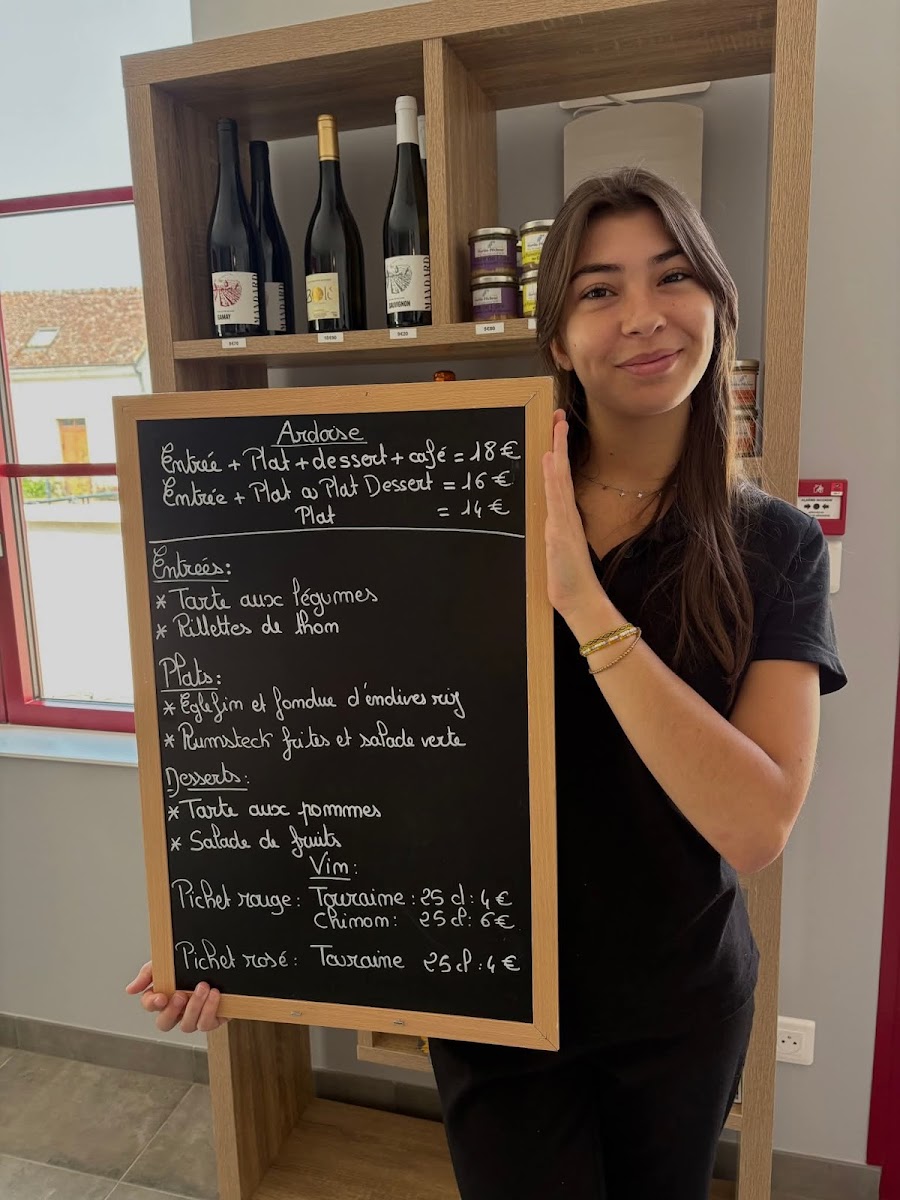 Ardoise
Entrée + Plat + dessert + café = 18€
Entrée + Plat ou Plat Dessert = 16€
Plat = 14€
Entrées:
* Tarte aux légumes
* Rillettes de thon
Plats:
* Eglefin et fondue d'endives riz
* Rumsteck frites et salade verte
Desserts:
* Tarte aux pommes
* Salade de fruits
Vin:
Pichet rouge: Touraine: 25 cl: 4€
Chinon: 25 cl: 6€
Pichet rosé: Touraine 25 cl: 4€
MANDARD
SAUVIGNON
MANDARD